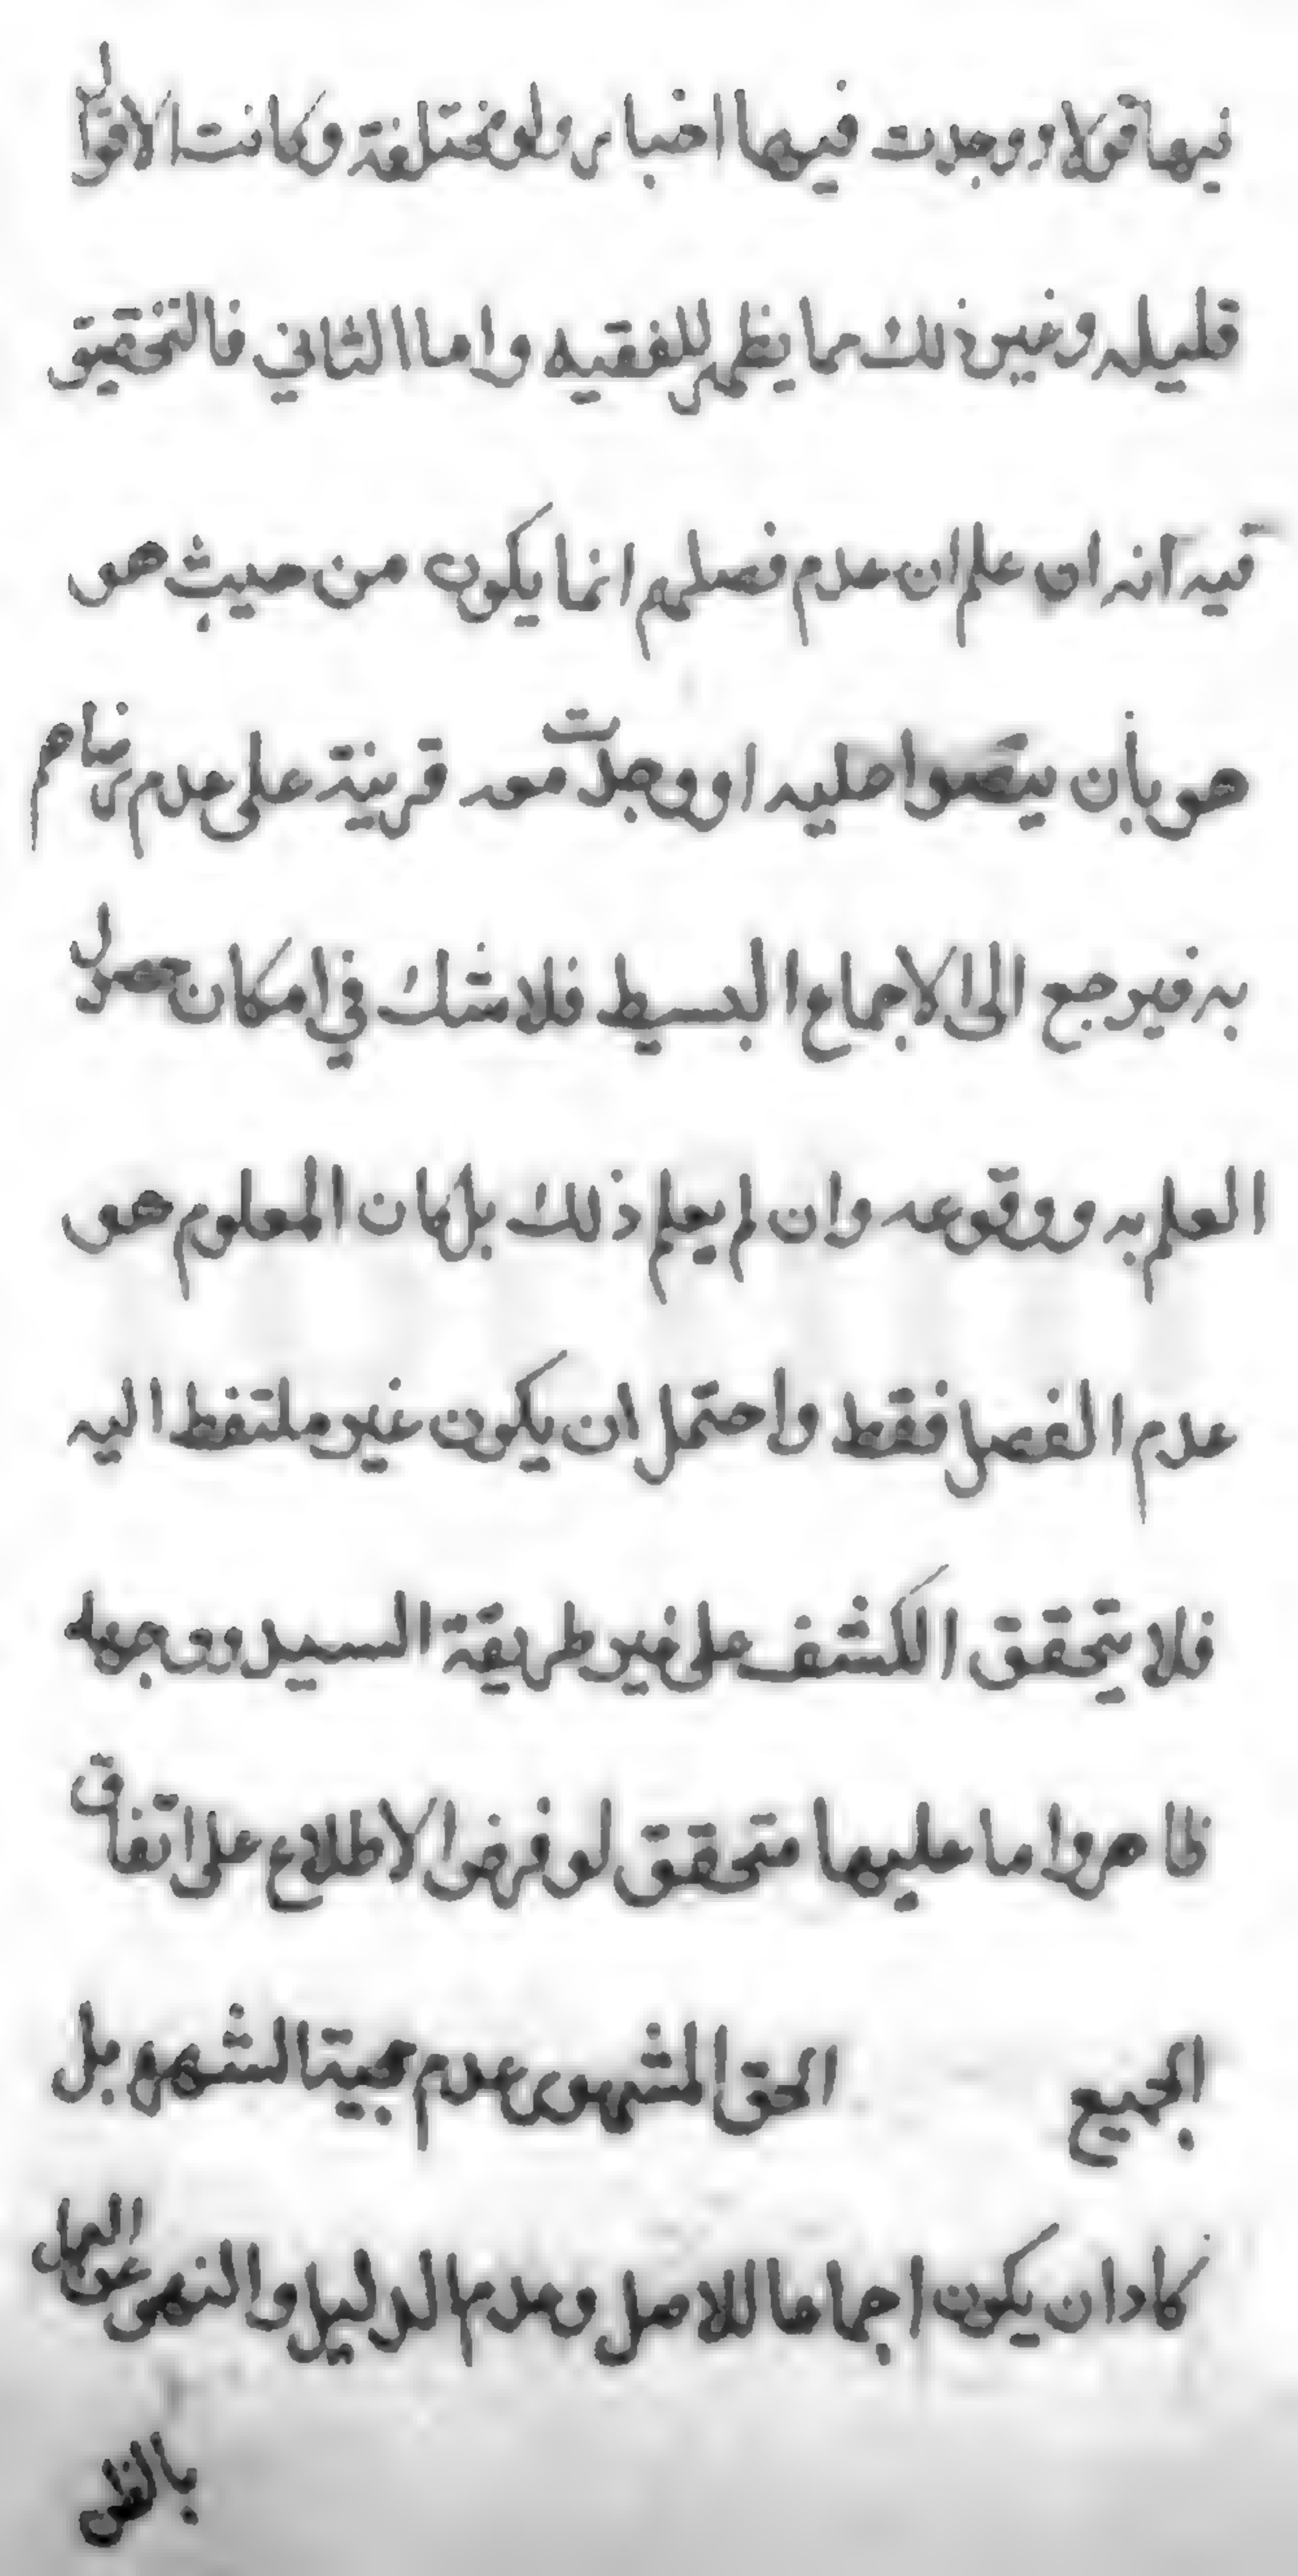 فيها قولا ووجدت فيها اخبار ولو مختلفة وكانت الاقوال
قليله وغير ذلك مما يظهر للفقيه واما الثاني فالتحقيق
فيه انه ان علم ان عدم فصلهم انما يكون من حيث هو
هو بأن ينصوا عليه او وجدت معه قرينة على عدم رضاهم
به فيرجع الى الاجماع البسيط فلا شك في امكان حصول
العلم به ووقوعه وان لم يعلم ذلك بل كان المعلوم هو
عدم الفصل فقط واحتمل ان يكون غير ملتفط اليه
فلا يتحقق الكشف على غير طريقة السيد ووجهه
ظاهر واما عليها متحقق لو فرض الاطلاع على اتفاق
الجميع الحق المشهور عدم حجية الشهره بل
كاد ان يكون اجماعا للاصل وعدم الدليل والنهى عن العمل
بالظن